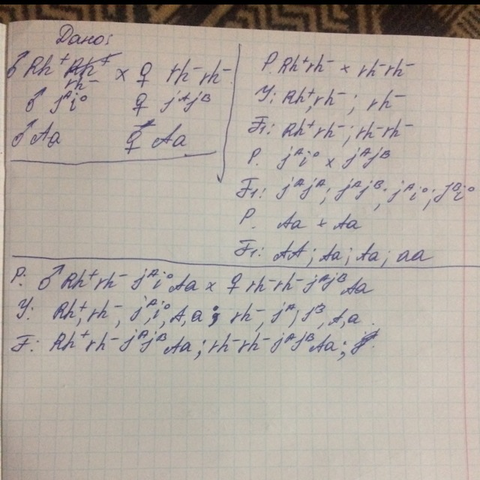 Дано:
♂ Rh⁺ rh⁻ × ♀ rh⁻rh⁻
♂ jᴬi⁰ ♀ jᴬjᴮ
♂ Aa ♀ Aa
P. Rh⁺rh⁻ × rh⁻rh⁻
У: Rh⁺, rh⁻; rh⁻
F₁: Rh⁺rh⁻; rh⁻rh⁻
P. jᴬi⁰ × jᴬjᴮ
F₁: jᴬjᴬ; jᴬjᴮ; jᴬi⁰; jᴮi⁰
P. Aa × Aa
F₁: AA; Aa; Aa; aa
P: ♂ Rh⁺rh⁻ jᴬi⁰ Aa × ♀ rh⁻rh⁻ jᴬjᴮ Aa
У: Rh⁺, rh⁻, jᴬ, i⁰, A, a; rh⁻, jᴬ, jᴮ, A, a
F: Rh⁺rh⁻ jᴬjᴮ Aa; rh⁻rh⁻ jᴬjᴮ Aa;